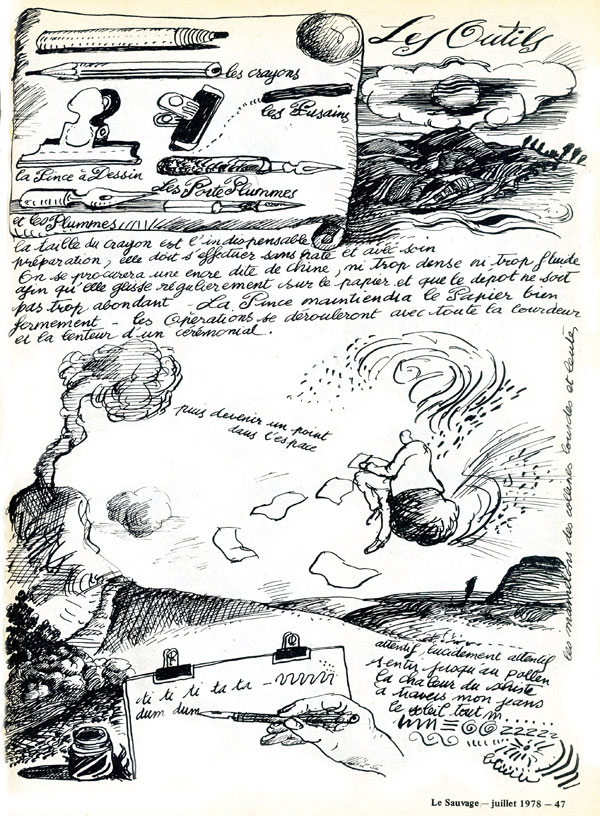 Les Outils
les crayons
les Fusains
la Pince à Dessin
Les Porte Plummes
et les Plummes
la taille du crayon est l'indispensable
préparation, elle doit s'effectuer sans hate et avec soin
On se procurera une encre dite de chine, ni trop dense ni trop fluide
afin qu'elle glisse régulierement sur le papier et que le depot ne soit
pas trop abondant - La Pince maintiendra le Papier bien
fermement - les Operations se dérouleront avec toute la lourdeur
et la lenteur d'un cérémonial.
puis devenir un point
dans l'espace
les mamelons des collines lourdes et lentes
attentif lucidement attentif
sentir jusqu'au pollen
la chaleur du schiste
a travers mon jeans
le soleil tout
ti ti ti ta ta
dum dum
Le Sauvage — juillet 1978 — 47